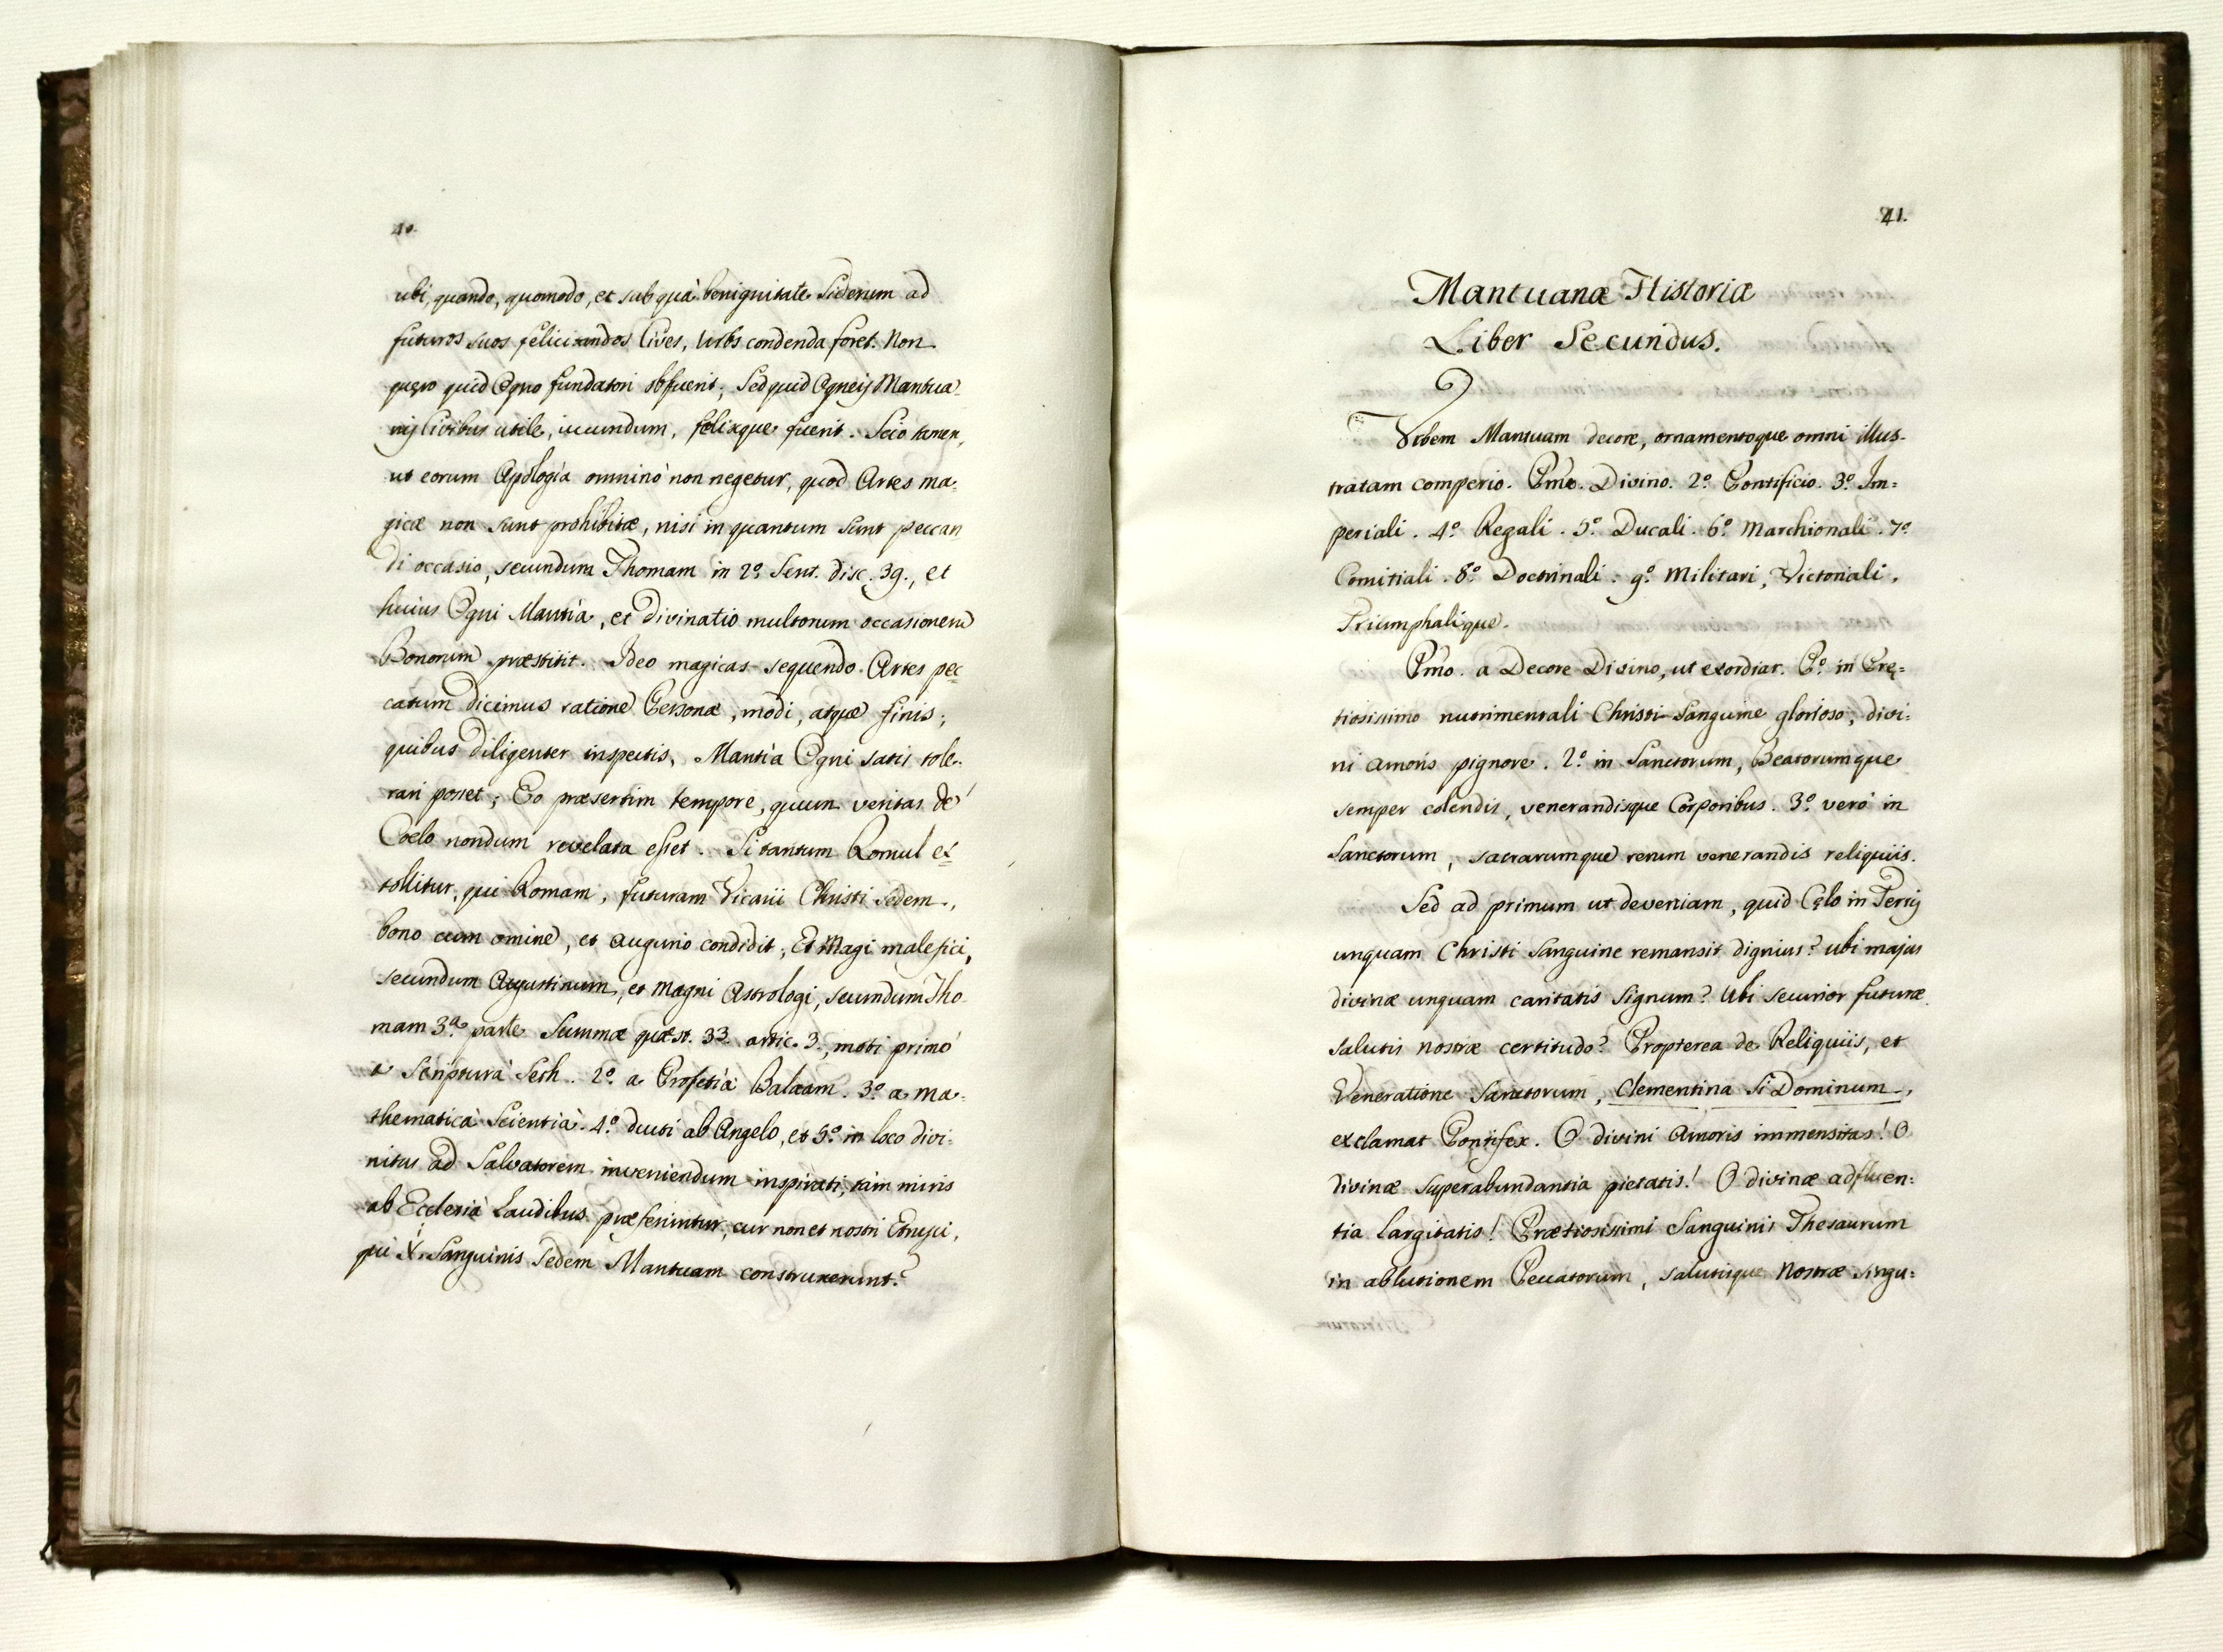 40.
ubi, quando, quomodo, et sub quâ benignitate Siderum ad
futuros suos felicitandos Cives, Urbs condenda foret. Non
quęro quid Ogno fundatori obfuerit; Sed quid Ogneis Mantua=
nis Civibus utile, iucundum, felixque fuerit. Scio tamen,
ut eorum Apologia omninò non negetur, quod Artes ma=
gicæ non sunt prohibitæ, nisi in quantum sunt peccan
di occasio, secundum Thomam in 2º Sent. disc. 39., et
huius Ogni Mantia, et divinatio multorum occasionem
Bonorum præstitit. Ideo magicas sequendo Artes pec=
catum dicimus ratione Personæ, modi, atque finis;
quibus diligenter inspectis, Mantìa Ogni satis tole=
rari posset; Eo præsertim tempore, quum veritas de
Coelo nondum revelata esset. Si tantum Romul ex=
tollitur, qui Romam, futuram Vicarii Christi Sedem,
bono cum omine, et augurio condidit; Et Magi malefici,
secundum Augustinum, et magni Astrologi, secundum Tho=
mam 3ª parte Summæ quæst. 33. artic. 3., moti primò
a Scripturà Seth. 2º a Profetià Balaam. 3º a ma=
thematicà Scientià. 4º ducti ab Angelo, et 5º in loco divi=
nitus ad Salvatorem inveniendum inspirati, tàm miris
ab Ecclesià Laudibus præferuntur, cur non et nostri Etrusci,
qui X. Sanguinis Sedem Mantuam construxerunt?
41.
Mantuanæ Historiæ
Liber Secundus.
Urbem Mantuam decore, ornamentoque omni illus=
tratam comperio. Pmo. Divino. 2º Pontificio. 3º Im=
periali. 4º Regali. 5º Ducali. 6º Marchionali. 7º
Comitiali. 8º Doctrinali. 9º Militari, Victoriali,
Triumphalique.
Pmo. a Decore Divino, ut exordiar. Pº in Prę=
tiosissimo nutrimentali Christi Sanguine glorioso, divi=
ni amoris pignore. 2º in Sanctorum, Beatorumque
semper colendis, venerandisque Corporibus. 3º verò in
Sanctorum, sacrarumque rerum venerandis reliquiis.
Sed ad primum ut deveniam, quid Cęlo in Terris
unquam Christi Sanguine remansit dignius? ubi majus
divinæ unquam caritatis Signum? Ubi securior futuræ
salutis nostræ certitudo? Propterea de Reliquiis, et
Veneratione Sanctorum, Clementina Si Dominum,
exclamat Pontifex. O divini Amoris immensitas! O
divinæ superabundantia pietatis! O divinæ adfluen=
tia largitatis! Prætiosissimi Sanguinis Thesaurum
in ablutionem Peccatorum, salutisque Nostræ singu=